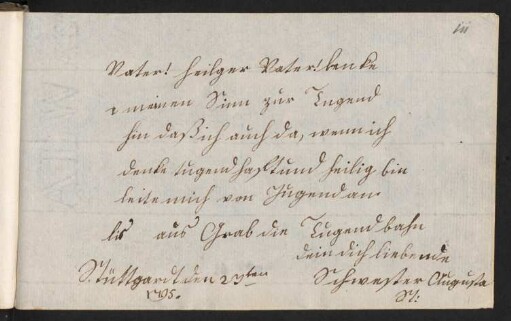 111
Vater! heilger Vater! lenke
meinen Sinn zur Tugend
hin daß ich auch da, wenn ich
denke tugendhafft und heilig bin
leite mich von Jugend an
bis ans Grab die Tugendbahn
dein dich liebende
Stüttgardt den 23ten Schwester Augusta
1795. St: